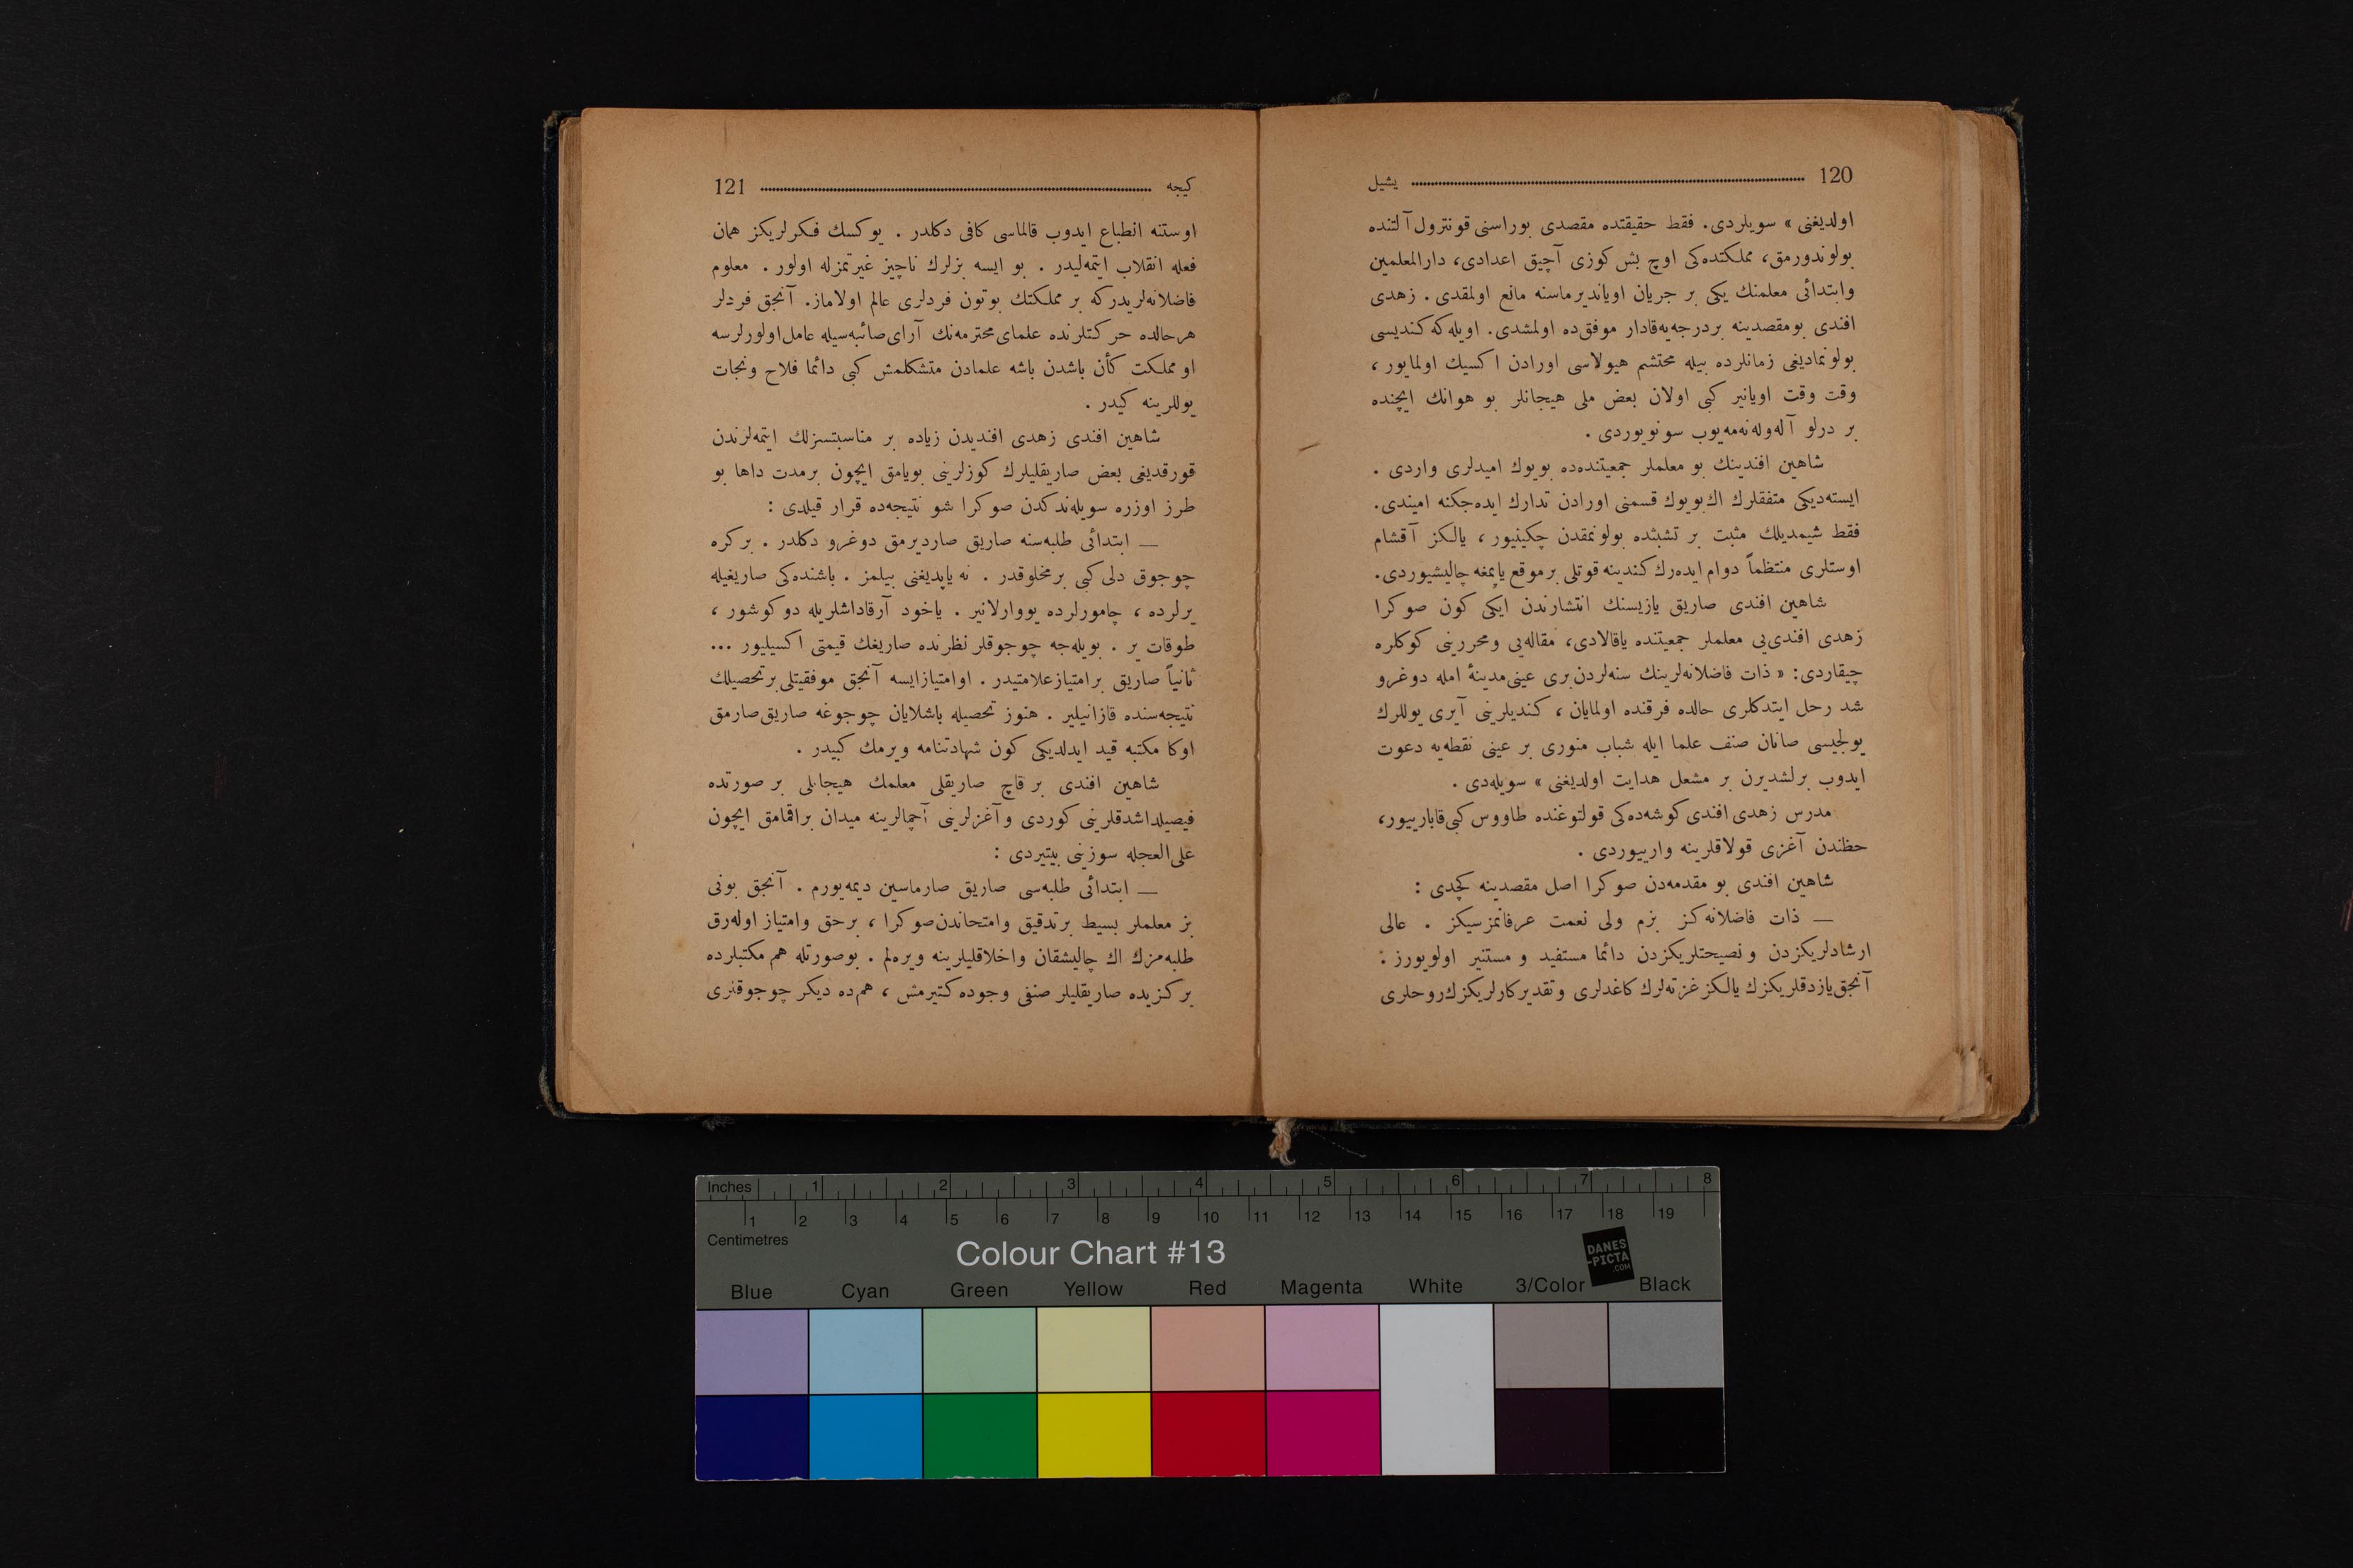 120 يشيل
اولديغنى » سويلردى. فقط حقيقتده مقصدى بوراسنى قونترول آلتنده
بولوندورمق، مملكتده‌كى اوچ بش كوزى آچيق اعدادى، دارالمعلمين
وابتدائى معلمنك يكى بر جريان اوياندیرماسنه مانع اولمقدى. زهدى
افندى بومقصدينه بردرجه‌يه‌قادار موفق‌ده اولمشدى. اويله‌كه كنديسى
بولونماديغى زمانلرده بيله محتشم هيولاسى اورادن اكسيك اولمايور ،
وقت وقت اويانير كبى اولان بعض ملى هيجانلر بو هوانك ايچنده
بر درلو آله‌وله‌نه‌مه‌يوب سونويوردى .
شاهين افندينك بو معلملر جمعيتنده‌ده بويوك اميدلرى واردى .
ايسته‌ديكى متفقلرك اك‌بويوك قسمنى اورادن تدارك ايده‌جكنه اميندى.
فقط شيمديلك مثبت بر تشبثده بولونمقدن چكينيور ، يالكز آقشام
اوستلرى منتظماً دوام ايده‌رك كندينه قوتلى برموقع ياپمغه چاليشيوردى.
شاهين افندى صاريق يازيسنك انتشارندن ايكى كون صوكرا
زهدى افندى‌يى معلملر جمعيتنده ياقالادى، مقاله‌يى ومحررينى كوكلره
چيقاردى: « ذات فاضلانه‌لرينك سنه‌لردن‌برى عينى‌مدينهٔ امله دوغرو
شد رحل ايتدكلرى حالده فرقنده اولمايان ، كنديلرينى آيرى يوللرك
يولجيسى صانان صنف علما ايله شباب منورى بر عينى نقطه‌يه دعوت
ايدوب برلشديرن بر مشعل هدايت اولديغنى » سويله‌دى .
مدرس زهدى افندى كوشه‌ده‌كى قولتوغنده طاووس كبى‌قاباريیور،
حظندن آغزى قولاقلرينه واريیوردى .
شاهين افندى بو مقدمه‌دن صوكرا اصل مقصدينه كچدى :
— ذات فاضلانه‌كز بزم ولى نعمت عرفانمزسيكز . عالى
ارشادلريكزدن ونصيحتلريكزدن دائما مستفيد و مستنير اولويورز .
آنجق‌يازدقلريكزك يالكز غزته‌لرك كاغدلرى وتقديركارلريكزك‌روحلرى
كيجه 121
اوستنه انطباع ايدوب قالماسى كافى دكلدر . يوكسك فكرلريكز همان
فعله انقلاب ايتمه‌ليدر . بو ايسه بزلرك ناچيز غيرتمزله اولور . معلوم
فاضلانه‌لريدركه بر مملكتك بوتون فردلرى عالم اولاماز. آنجق فردلر
هرحالده حركتلرنده علماى‌محترمه‌نك آراى‌صائبه‌سيله عامل‌اولورلرسه
او مملكت كأن باشدن باشه علمادن متشكلمش كبى دائما فلاح ونجات
يوللرينه كيدر .
شاهين افندى زهدى افنديدن زياده بر مناسبتسزلك ايتمه‌لرندن
قورقديغى بعض صاريقليلرك كوزلرينى بويامق ايچون برمدت داها بو
طرز اوزره سويله‌ندكدن صوكرا شو نتيجه‌ده قرار قيلدى :
— ابتدائى طلبه‌سنه صاريق صاردیرمق دوغرو دكلدر . بركره
چوجوق دلى كبى برمخلوقدر . نه ياپديغنى بيلمز . باشنده‌كى صاريغيله
يرلرده ، چامورلرده يووارلانير . ياخود آرقاداشلريله دوكوشور ،
طوقات ير . بويله‌جه چوجوقلر نظرنده صاريغك قيمتى اكسيليور ...
ثانياً صاريق برامتيازعلامتيدر . اوامتيازايسه آنجق موفقيتلى‌برتحصيلك
نتيجه‌سنده قازانيلير . هنوز تحصيله باشلايان چوجوغه صاريق‌صارمق
اوكا مكتبه قيد ايدلديكى كون شهادتنامه ويرمك كبيدر .
شاهين افندى بر قاچ صاريقلى معلمك هيجانلى بر صورتده
فيصيلداشدقلرينى كوردى وآغزلرينى آچمالرينه ميدان براقمامق ايچون
على‌العجله سوزينى بيتيردى :
— ابتدائى طلبه‌سى صاريق صارماسين ديمه‌يورم . آنجق بونى
بز معلملر بسيط برتدقيق وامتحاندن‌صوكرا ، برحق وامتياز اوله‌رق
طلبه‌مزك اك چاليشقان واخلاقليلرينه ويره‌لم . بوصورتله هم مكتبلرده
بر كزيده صاريقليلر صنفى وجوده كتيرمش ، هم‌ده ديكر چوجوقلرى
Inches 1 2 3 4 5 6 7 8
1 2 3 4 5 6 7 8 9 10 11 12 13 14 15 16 17 18 19
Centimetres
Colour Chart #13
DANES
-PICTA
.COM
Blue Cyan Green Yellow Red Magenta White 3/Color Black